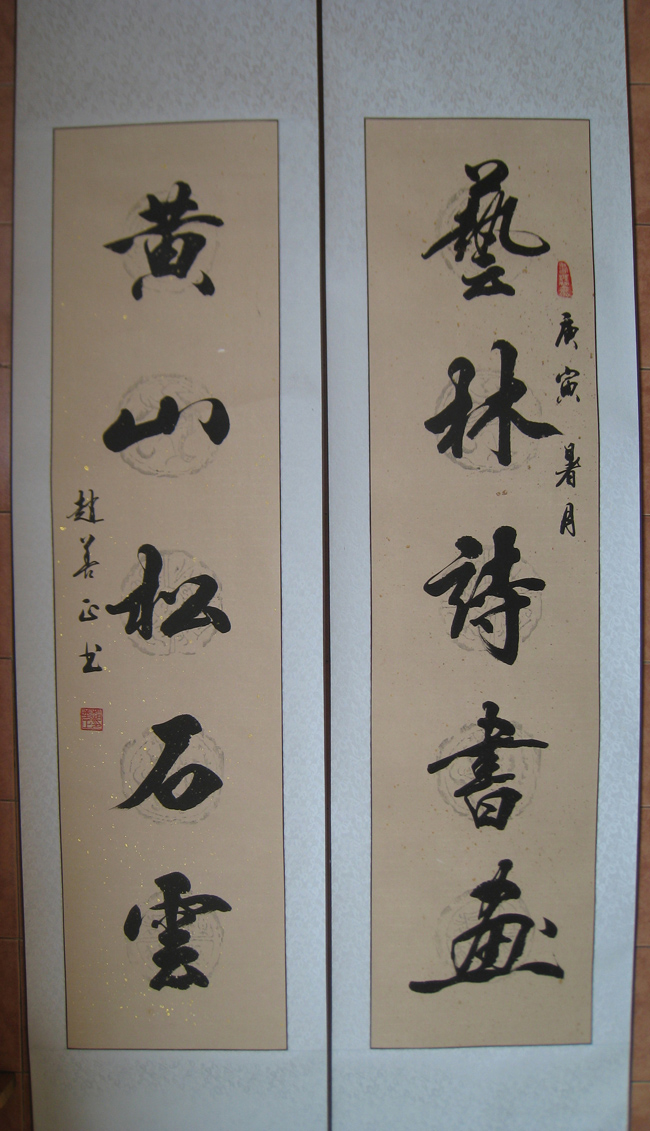 藝林詩書畫
庚寅暑月
黄山松石雲
趙善正书